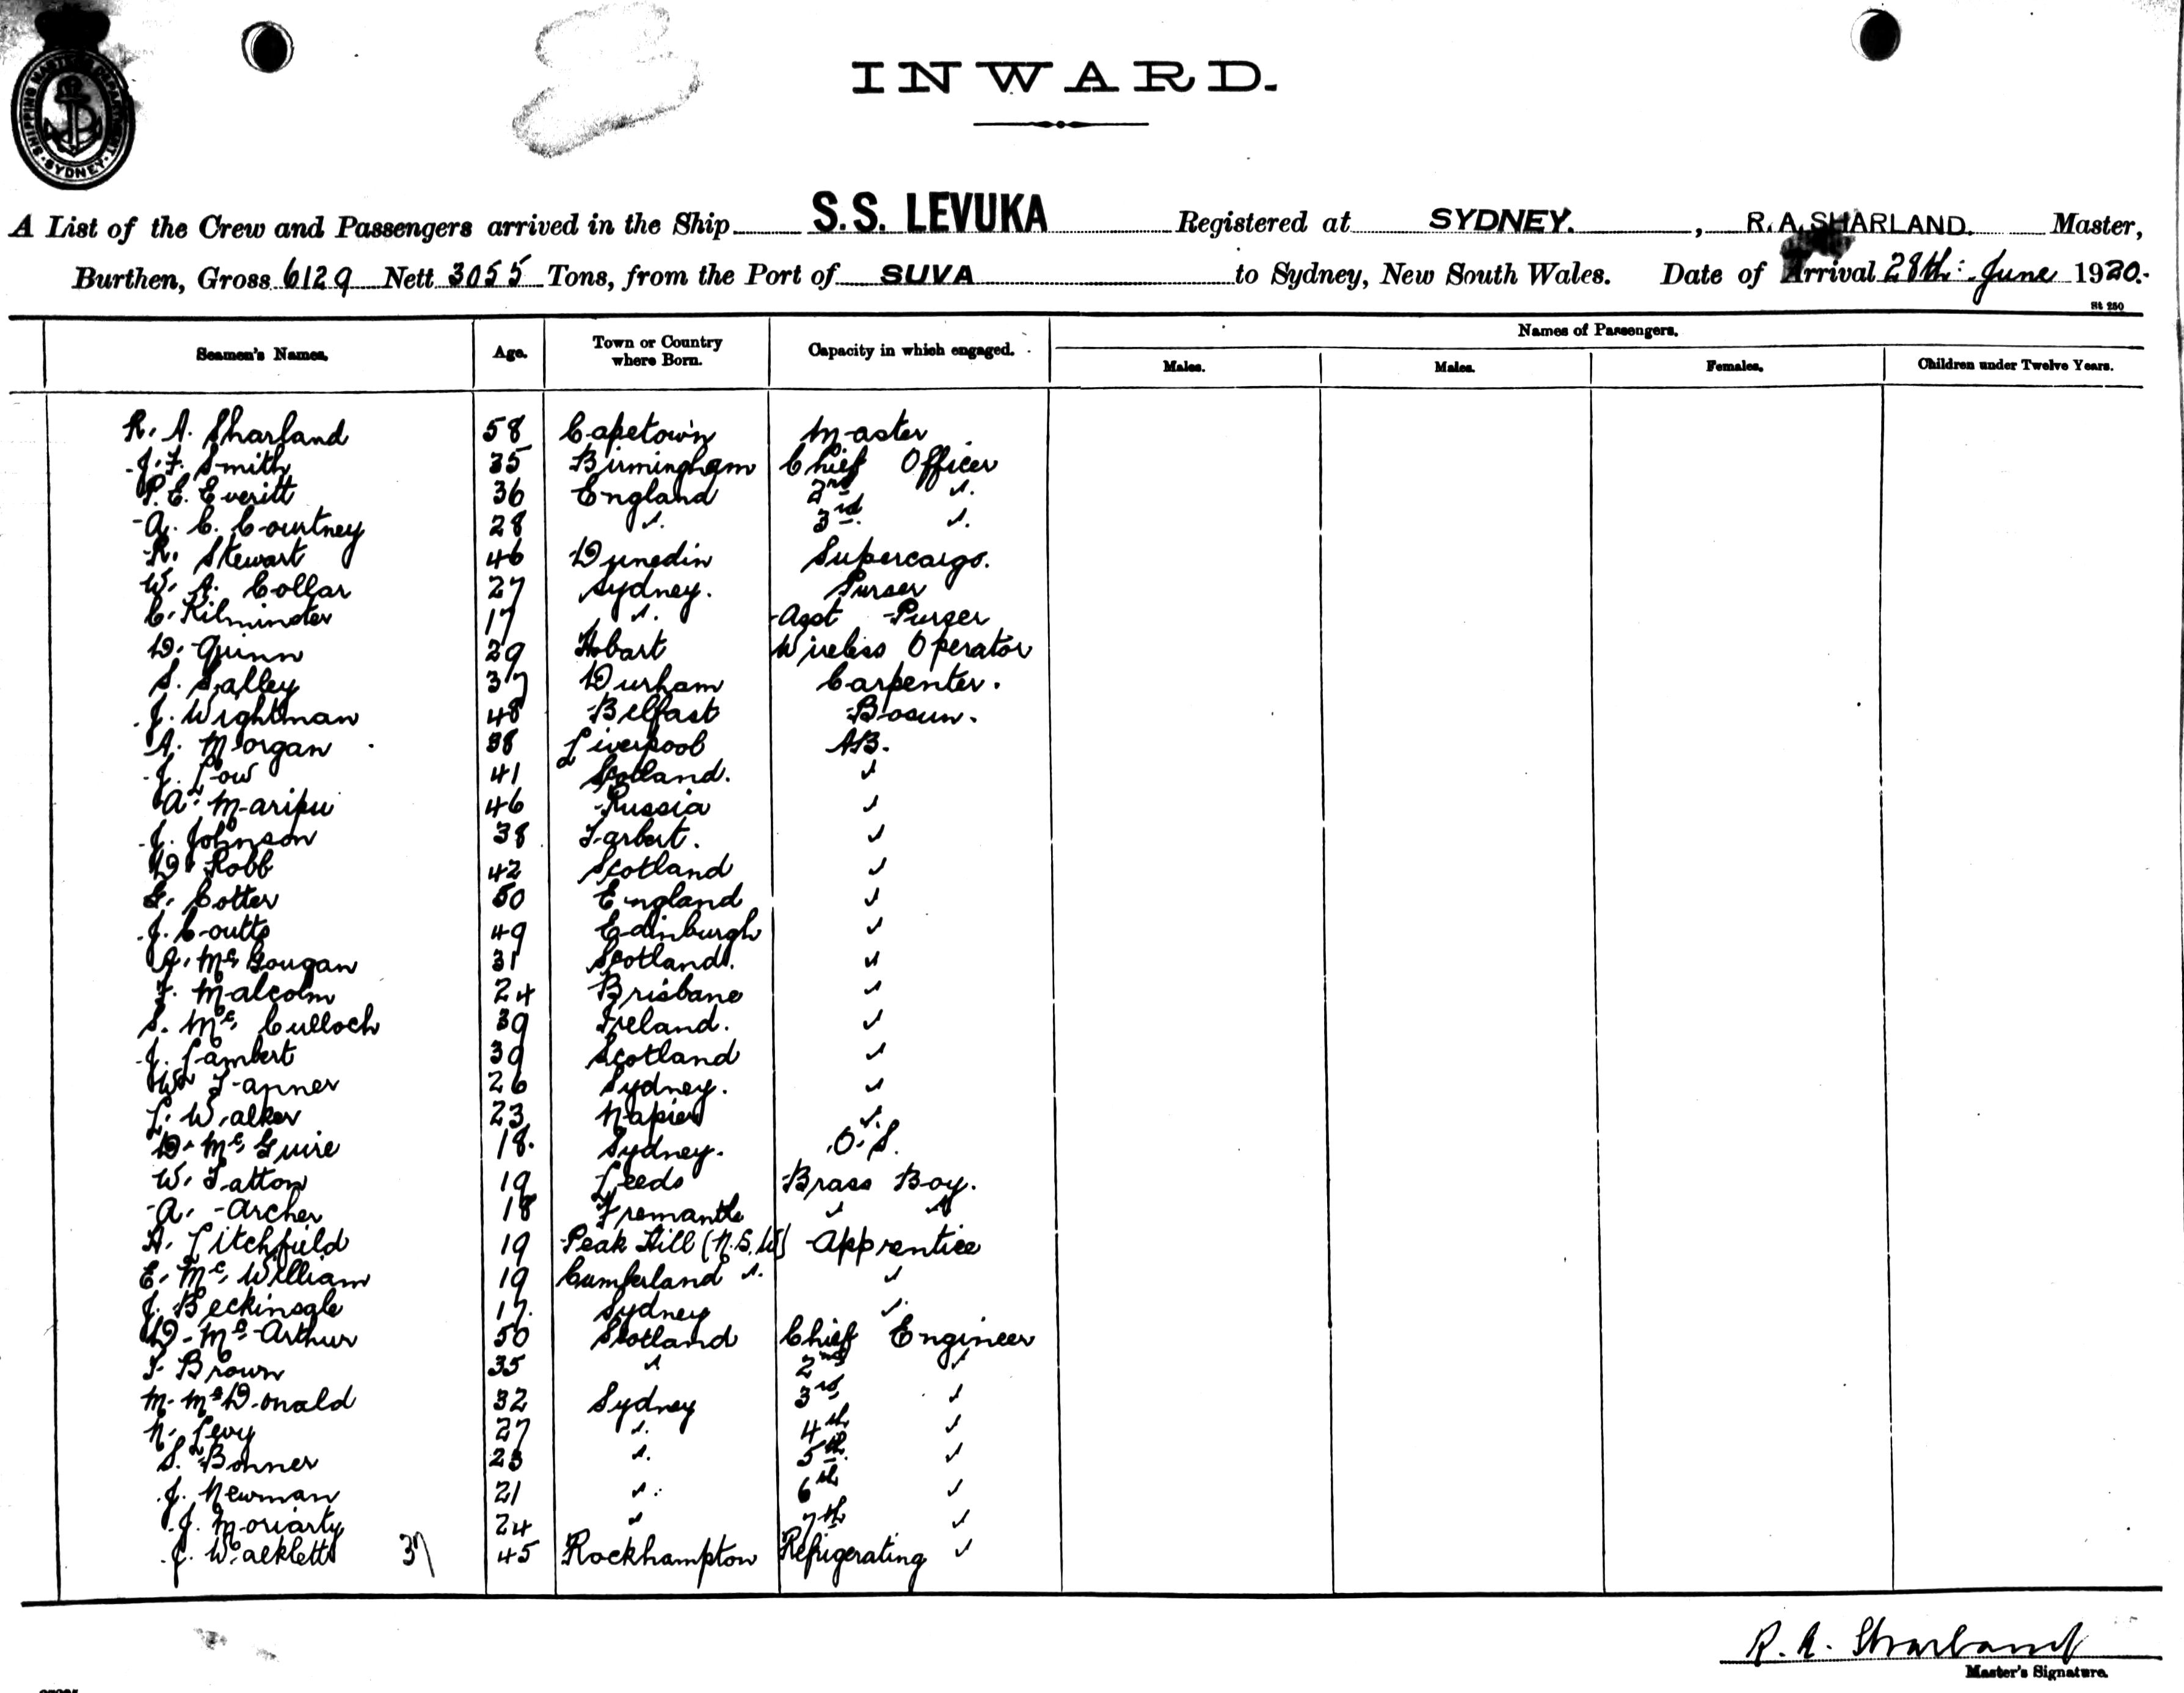 SHIPPING MASTER'S DEPARTMENT · SYDNEY ·
INWARD.
A List of the Crew and Passengers arrived in the Ship S.S. LEVUKA Registered at SYDNEY. , R. A. SHARLAND. Master,
Burthen, Gross 6129 Nett 3055 Tons, from the Port of SUVA to Sydney, New South Wales. Date of Arrival 28th: June 1920.
St 250
Names of Passengers.
Seamen's Names. Age. Town or Country where Born. Capacity in which engaged. Males. Males. Females. Children under Twelve Years.
R. A. Sharland 58 Capetown Master
J. F. Smith 35 Birmingham Chief Officer
P. E. Everitt 36 England 2nd "
A. C. Courtney 28 " 3rd "
R. Stewart 46 Dunedin Supercargo.
W. A. Collar 27 Sydney. Purser
C. Kilminster 17 " Asst Purser
D. Quinn 29 Hobart Wireless Operator
S. Salley 37 Durham Carpenter.
J. Wightman 48 Belfast Bosun.
A. Morgan 38 Liverpool AB.
J. Low 41 Scotland. "
A. Maripu 46 Russia "
J. Johnson 38 Tarbert. "
D. Robb 42 Scotland "
G. Cotter 50 England "
J. Coutts 49 Edinburgh "
A. McGougan 31 Scotland. "
F. Malcolm 24 Brisbane "
S. McCulloch 39 Ireland. "
J. Lambert 39 Scotland "
W. Tanner 26 Sydney. "
L. Walker 23 Napier "
D. McGuire 18. Sydney. O.S.
W. Tatton 19 Leeds Brass Boy.
A. Archer 18 Fremantle " "
A. Litchfield 19 Peak Hill (N.S.W) Apprentice
E. McWilliam 19 Cumberland " "
J. Beckinsale 17. Sydney "
D. McArthur 50 Scotland Chief Engineer
T. Brown 35 " 2nd "
M. McDonald 32 Sydney 3rd "
N. Levy 27 " 4th "
S. Bonner 23 " 5th "
J. Newman 21 " 6th "
J. Moriarty 24 " 7th "
J. Walkletts 37 45 Rockhampton Refrigerating "
R. A. Sharland
Master's Signature.